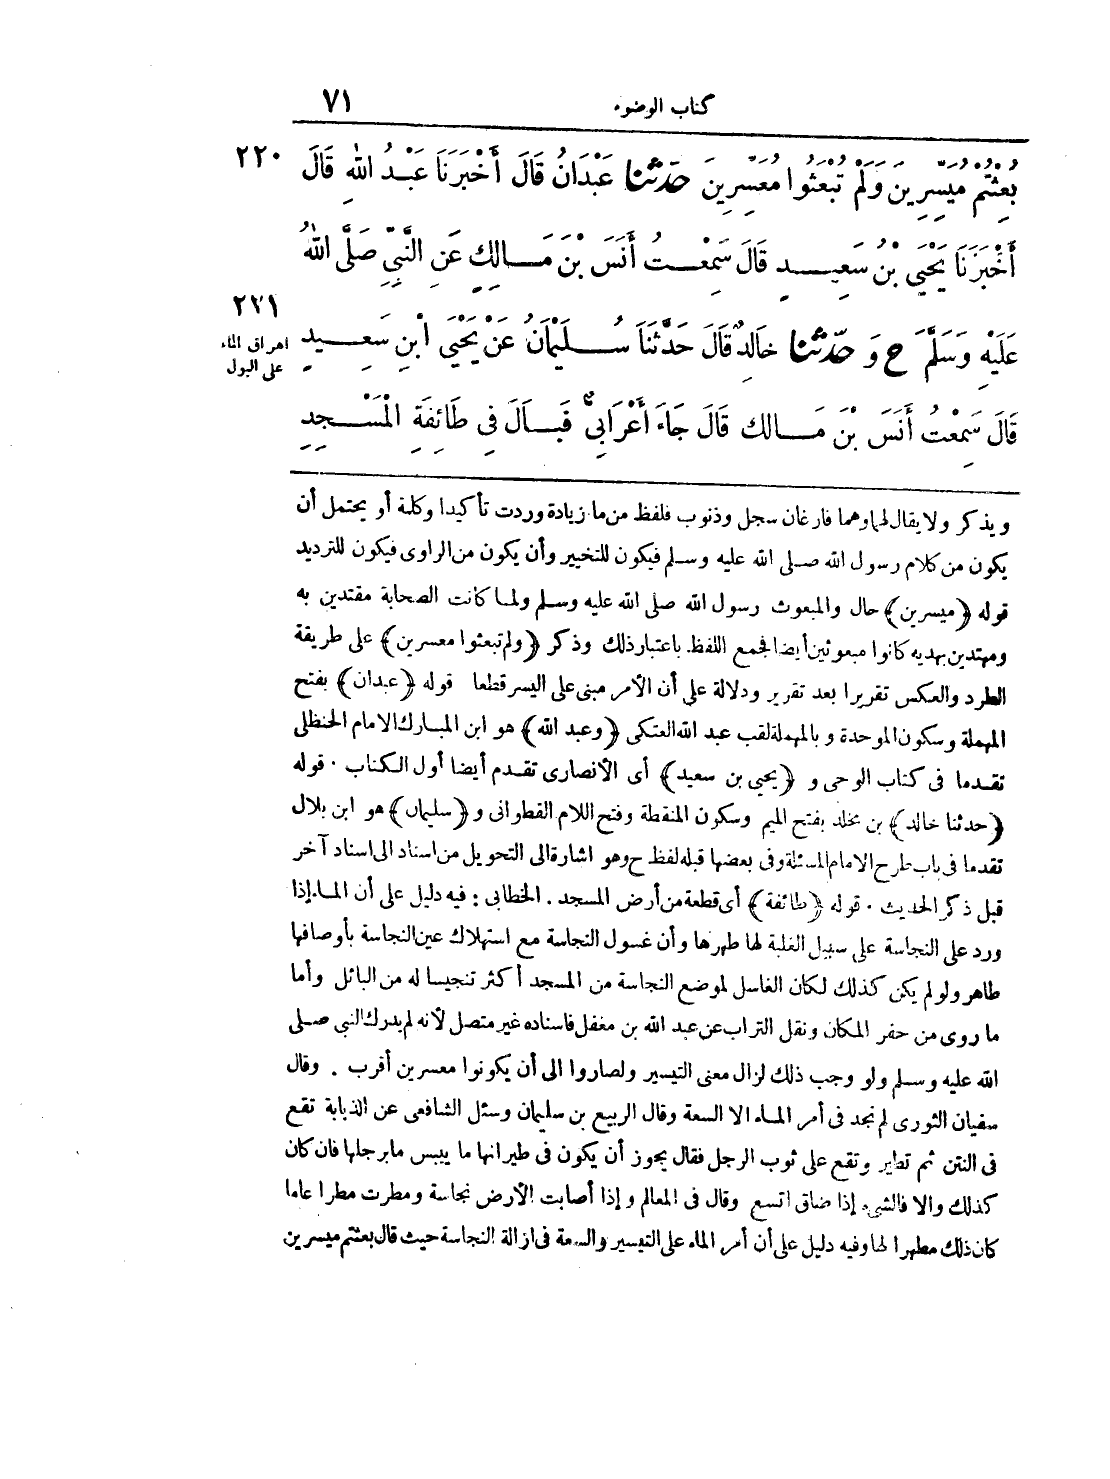 كتاب الوضوء ٧١
بُعِثْتُمْ مُيَسِّرِينَ وَلَمْ تُبْعَثُوا مُعَسِّرِينَ حَدَّثنا عَبْدَانُ قَالَ أَخْبَرَنَا عَبْدُ اللهِ قَالَ ٢٢٠
أَخْبَرَنَا يَحْيَى بْنُ سَعِيدٍ قَالَ سَمِعْتُ أَنَسَ بْنَ مَالِكٍ عَنِ النَّبِيِّ صَلَّى اللهُ
عَلَيْهِ وَسَلَّمَ ح وَ حَدَّثنا خَالِدٌ قَالَ حَدَّثَنَا سُلَيْمَانُ عَنْ يَحْيَى ابْنِ سَعِيدٍ ٢٢١
اهراق الماء
على البول
قَالَ سَمِعْتُ أَنَسَ بْنَ مَالِكٍ قَالَ جَاءَ أَعْرَابِيٌّ فَبَالَ فِي طَائِفَةِ الْمَسْجِدِ
ويذكر ولا يقال لها وهما فارغان سجل وذنوب فلفظ من ما زيادة وردت تأكيدا وكلمة أو يحتمل أن
يكون من كلام رسول الله صلى الله عليه وسلم فيكون للتخيير وأن يكون من الراوى فيكون للترديد
قوله ﴿ميسرين﴾ حال والمبعوث رسول الله صلى الله عليه وسلم ولما كانت الصحابة مقتدين به
ومهتدين بهديه كانوا مبعوثين أيضا فجمع اللفظ باعتبار ذلك وذكر ﴿ولم تبعثوا معسرين﴾ على طريقة
الطرد والعكس تقريرا بعد تقرير ودلالة على أن الأمر مبنى على اليسر قطعا قوله ﴿عبدان﴾ بفتح
المهملة وسكون الموحدة وبالمهملة لقب عبد الله العتكى ﴿وعبد الله﴾ هو ابن المبارك الامام الحنظلى
تقدما فى كتاب الوحى و ﴿يحيى بن سعيد﴾ أى الأنصارى تقدم أيضا أول الكتاب . قوله
﴿حدثنا خالد﴾ بن مخلد بفتح الميم وسكون المنقطة وفتح اللام القطوانى و ﴿سليمان﴾ هو ابن بلال
تقدما فى باب طرح الامام المسئلة وفى بعضها قبله لفظ ح وهو اشارة الى التحويل من اسناد الى اسناد آخر
قبل ذكر الحديث . قوله ﴿طائفة﴾ أى قطعة من أرض المسجد . الخطابى : فيه دليل على أن الماء إذا
ورد على النجاسة على سبيل الغلبة لها طهرها وأن غسول النجاسة مع استهلاك عين النجاسة بأوصافها
طاهر ولو لم يكن كذلك لكان الغاسل لموضع النجاسة من المسجد أكثر تنجيسا له من البائل وأما
ما روى من حفر المكان ونقل التراب عن عبد الله بن مغفل فاسناده غير متصل لأنه لم يدرك النبى صلى
الله عليه وسلم ولو وجب ذلك لزال معنى التيسير ولصاروا الى أن يكونوا معسرين أقرب . وقال
سفيان الثورى لم نجد فى أمر الماء الا السعة وقال الربيع بن سليمان وسئل الشافعى عن الذبابة تقع
فى النتن ثم تطاير وتقع على ثوب الرجل فقال يجوز أن يكون فى طيرانها ما ييبس ما برجلها فان كان
كذلك والا فالشىء إذا ضاق اتسع وقال فى المعالم وإذا أصابت الأرض نجاسة ومطرت مطرا عاما
كان ذلك مطهرا لها وفيه دليل على أن أمر الماء على التيسير والسعة فى ازالة النجاسة حيث قال بعثتم ميسرين